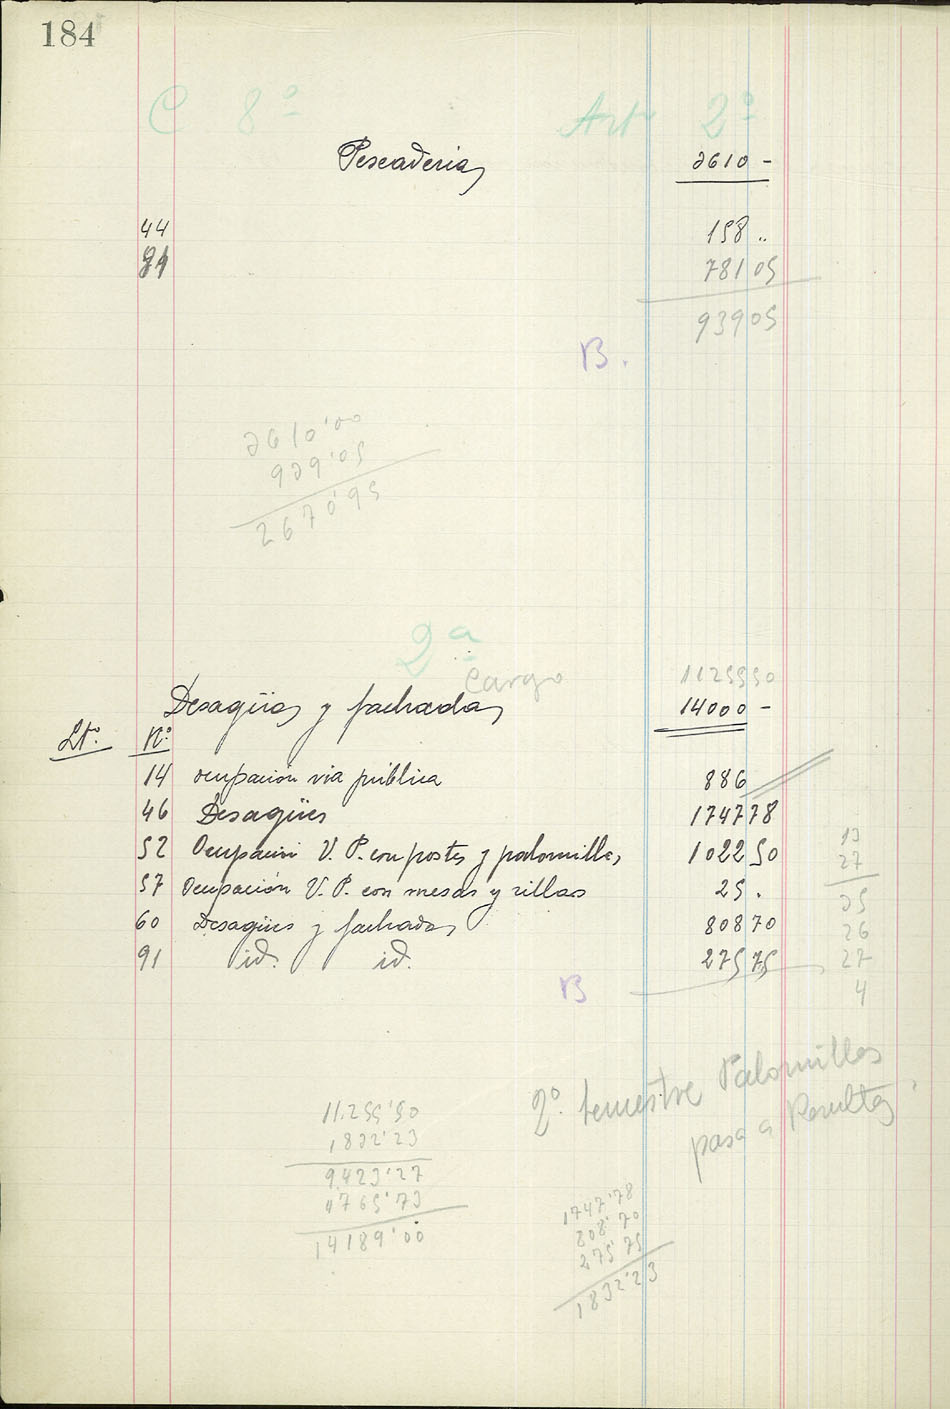 184
C 8º Artº 2º
Pescaderia 3610 -
44 158 ..
91 781 05
939 05
B.
3610'00
939'05
2670'95
2ª
Cargo 11255 50
Desagües y fachadas 14000 -
Lº. Nº
14 ocupación via pública 886
46 Desagües 1747 78
52 Ocupación V. P. con postes y palomillas 1022 50
57 Ocupación V. P. con mesas y sillas 25 .
60 Desagües y fachadas 808 70
91 id. id. 275 75
B
13
27
35
26
27
4
2º. semestre Palomillas
pasa a Resultas
11.255'50
1832'23
9423'27
4765'73
14189'00
1747'78
808'70
275'75
1832'23